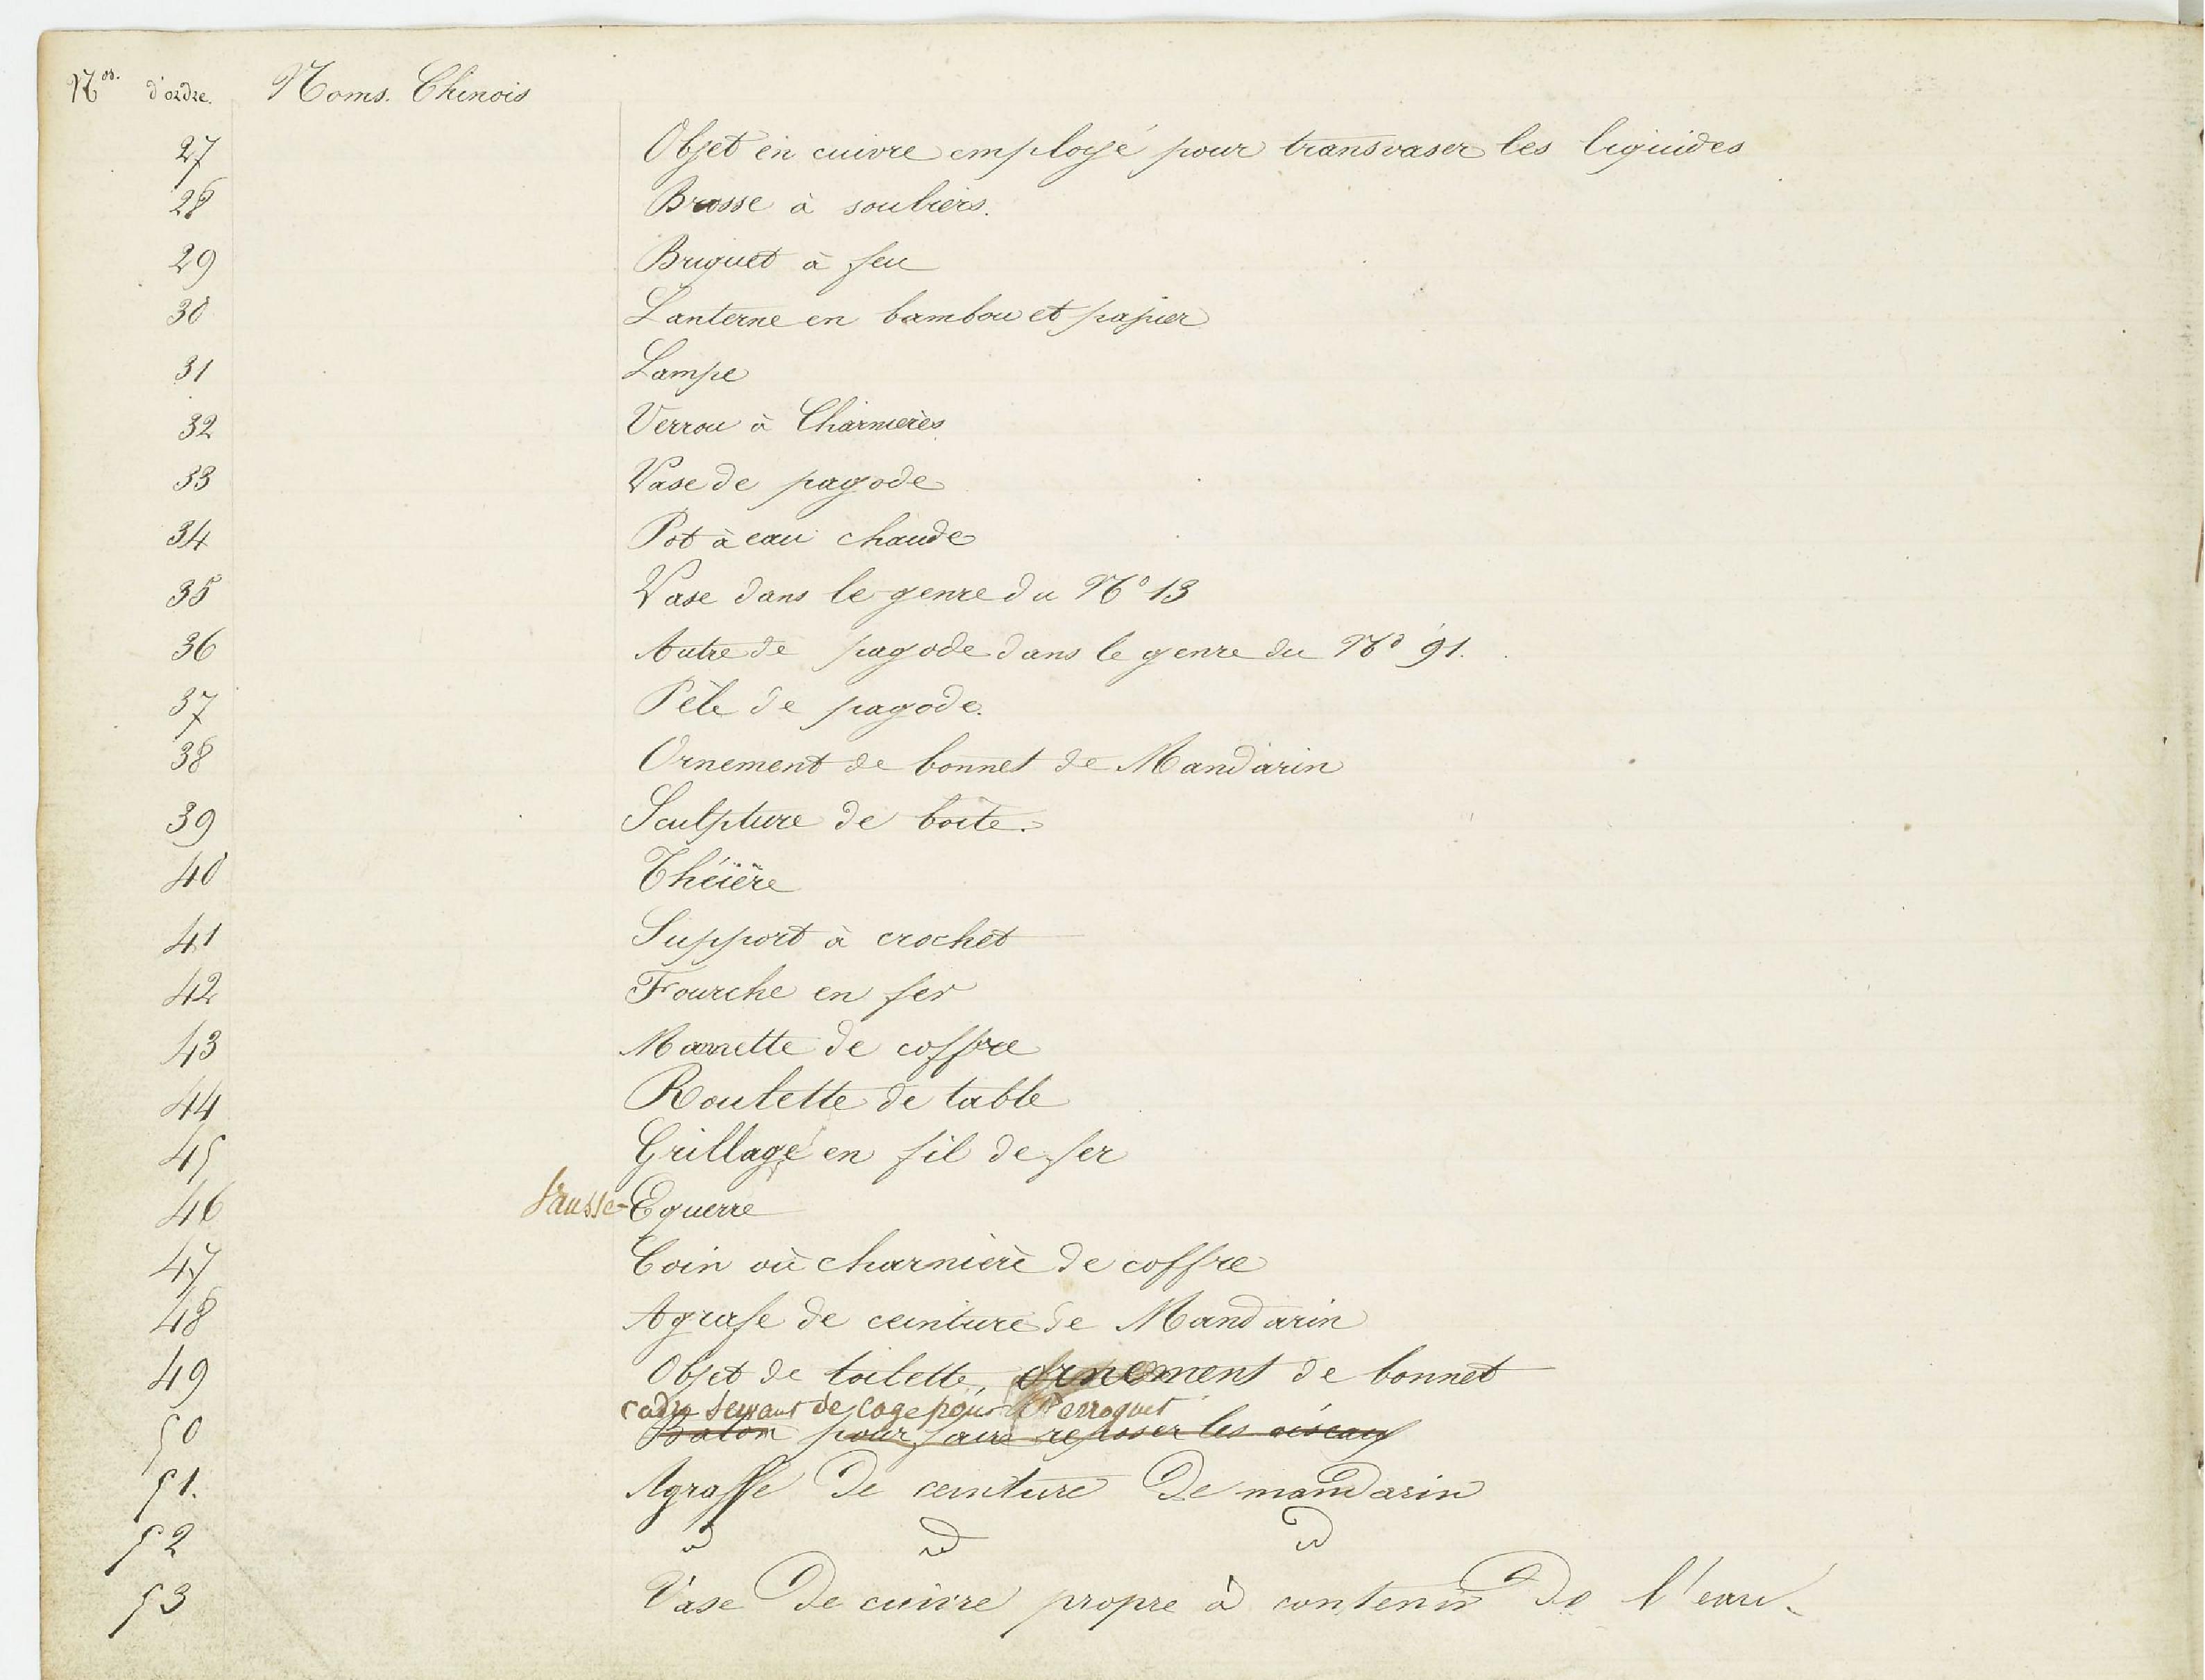 Nos. d'ordre. Noms. Chinois
27 Objet en cuivre employé pour transvaser les liquides
28 Brosse à souliers.
29 Briquet à feu
30 Lanterne en bambou et papier
31 Lampe
32 Verrou à Charnières
33 Vase de pagode
34 Pot à eau chaude
35 Vase dans le genre du No 13
36 Autre de pagode dans le genre du No 91.
37 Pêle de pagode.
38 Ornement de bonnet de Mandarin
39 Sculpture de boîte.
40 Théière
41 Support à crochet
42 Fourche en fer
43 Manette de coffre
44 Roulette de table
45 Grillage en fil de fer
46 fausse-Equerre
47 Coin où charnière de coffre
48 Agrafe de ceinture de Mandarin
49 Objet de toilette, ornement de bonnet
cadre servant de cage pour Perroquet
50 Baton pour faire reposer les oiseaux
51. Agraffe de ceinture de mandarin
52 d d d
53 Vase de cuivre propre à contenir de l'eau.